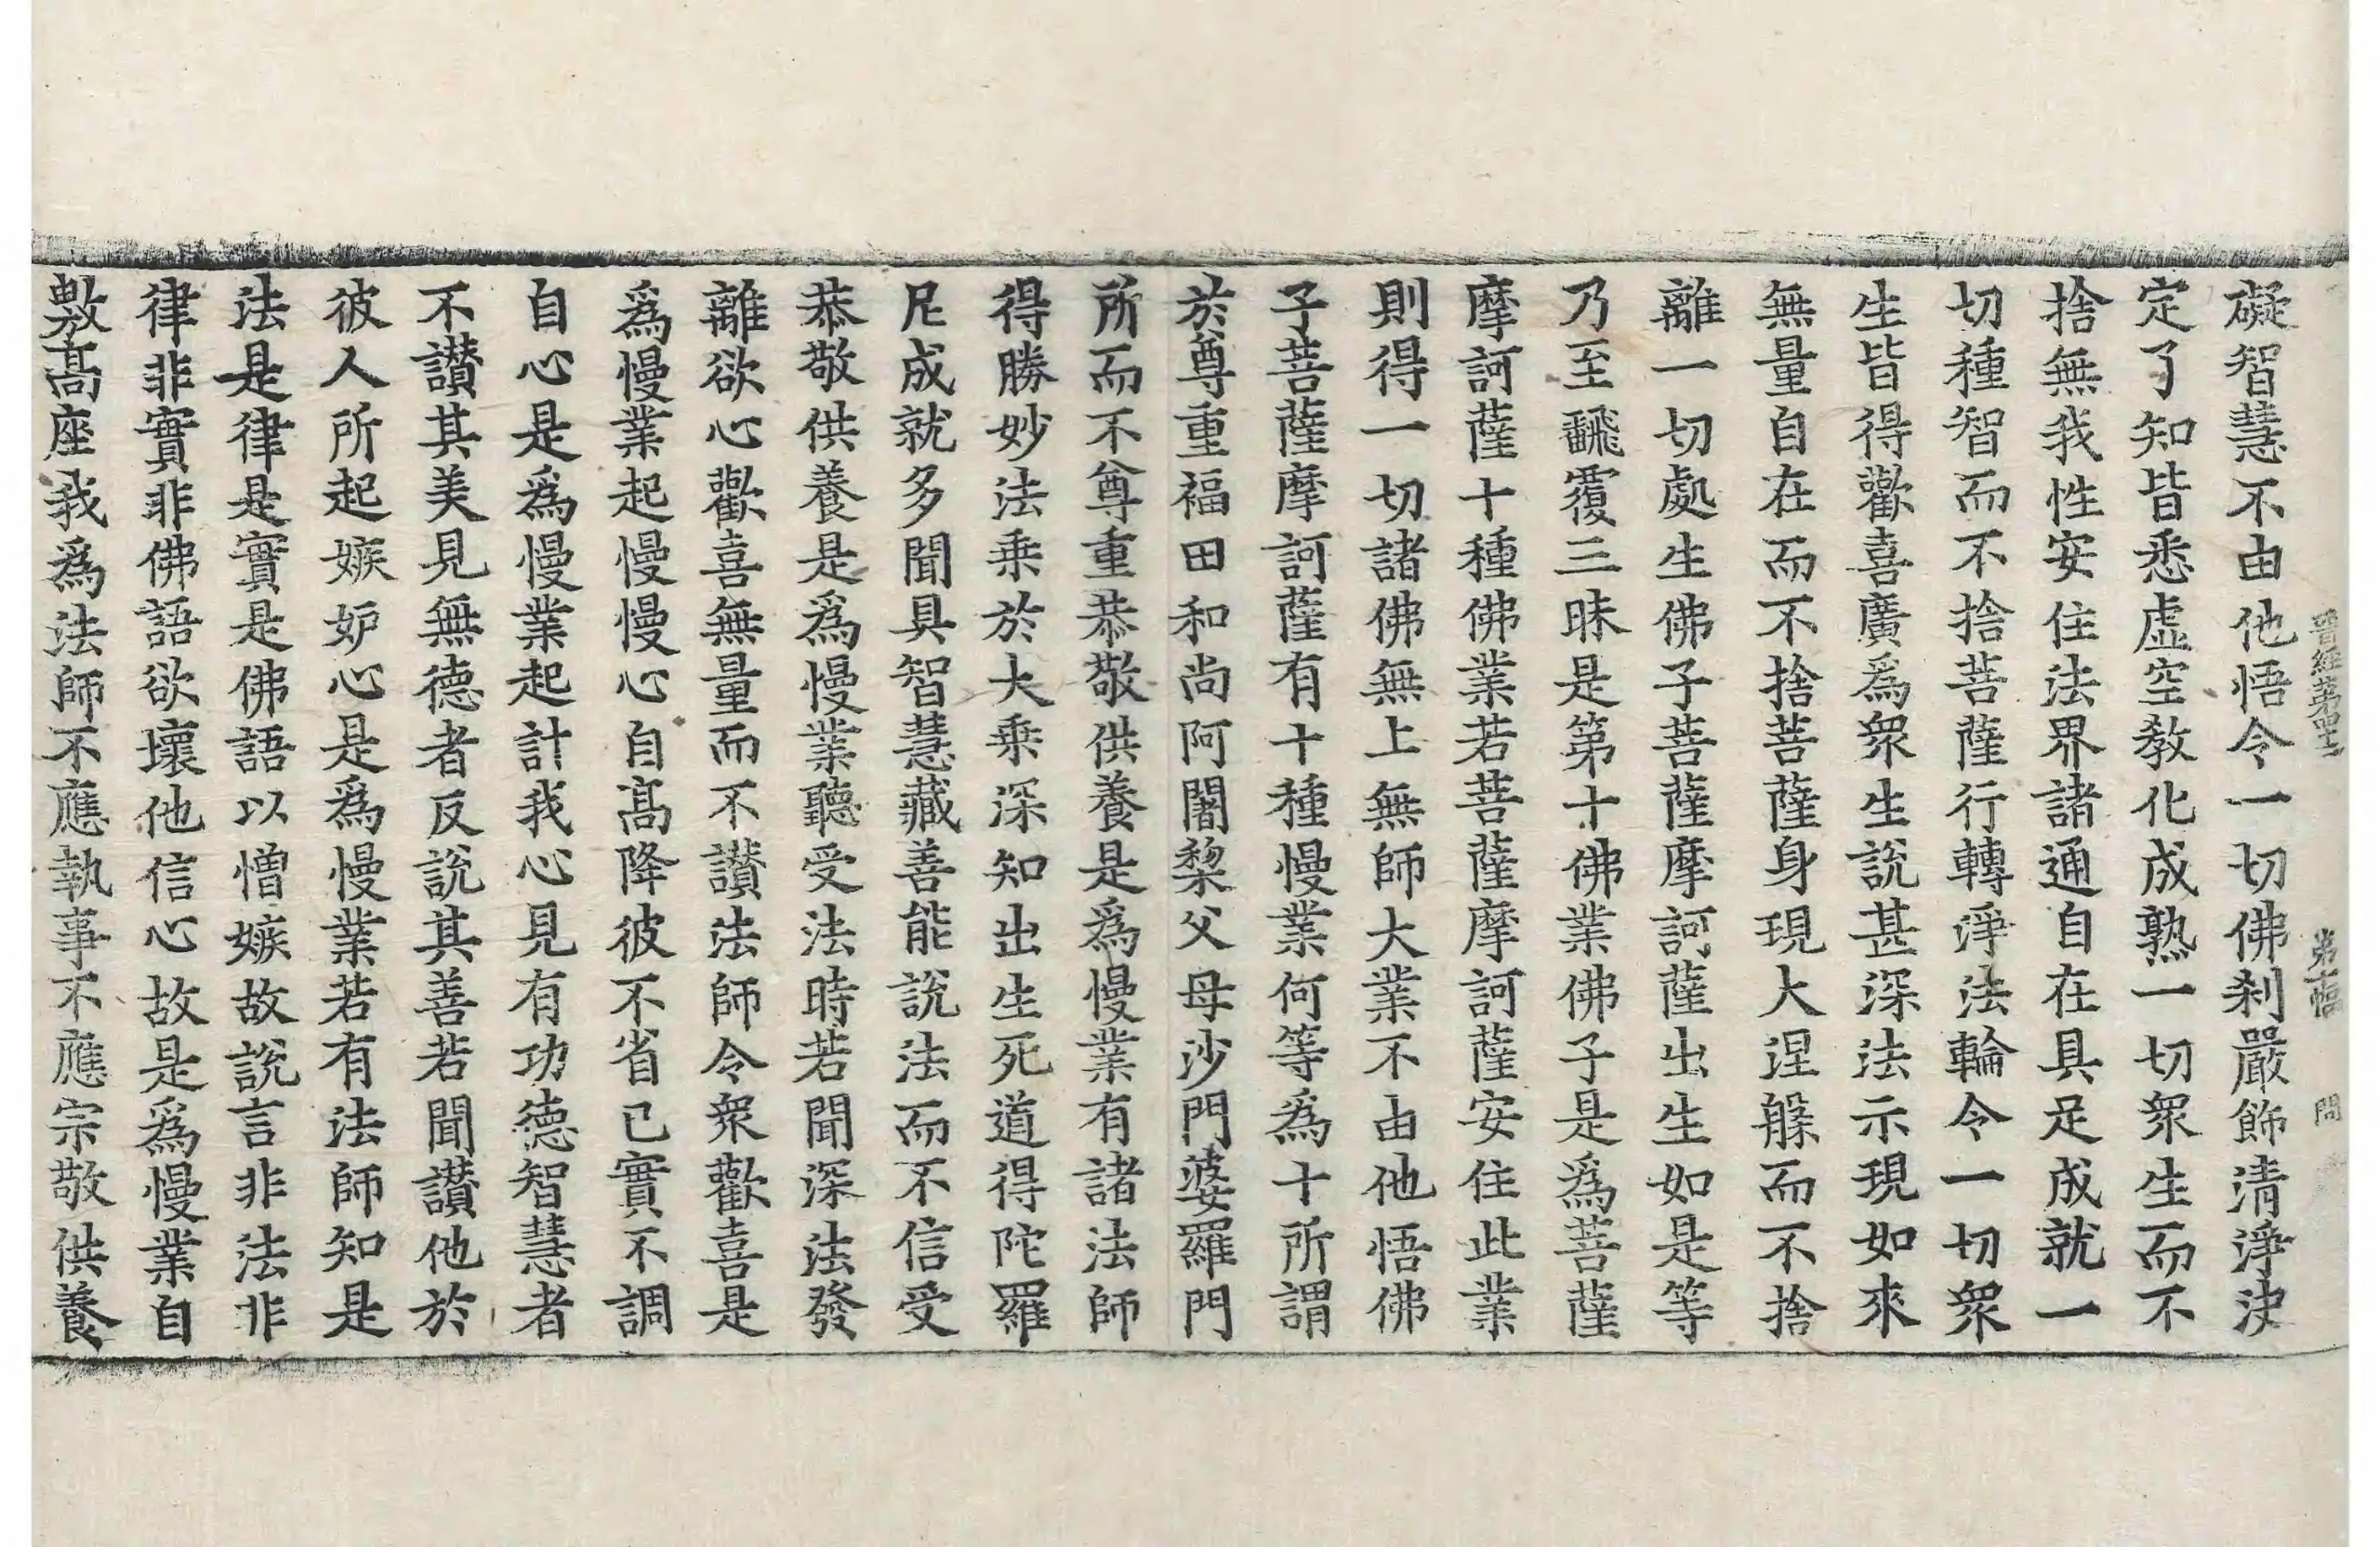 晋經第四十二　第十幅　問
礙智慧不由他悟令一切佛刹嚴飾清淨决
定了知皆悉虚空教化成熟一切衆生而不
捨無我性安住法界諸通自在具足成就一
切種智而不捨菩薩行轉淨法輪令一切衆
生皆得歡喜廣爲衆生說甚深法示現如來
無量自在而不捨菩薩身現大涅槃而不捨
離一切處生佛子菩薩摩訶薩出生如是等
乃至飜覆三昧是第十佛業佛子是爲菩薩
摩訶薩十種佛業若菩薩摩訶薩安住此業
則得一切諸佛無上無師大業不由他悟佛
子菩薩摩訶薩有十種慢業何等爲十所謂
於尊重福田和尚阿闍棃父母沙門婆羅門
所而不尊重恭敬供養是爲慢業有諸法師
得勝妙法乗於大乗深知出生死道得陀羅
尼成就多聞具智慧藏善能說法而不信受
恭敬供養是爲慢業聽受法時若聞深法發
離欲心歡喜無量而不讃法師令衆歡喜是
爲慢業起慢慢心自髙降彼不省已實不調
自心是爲慢業起計我心見有功德智慧者
不讃其美見無德者反說其善若聞讃他於
彼人所起嫉妒心是爲慢業若有法師知是
法是律是實是佛語以憎嫉故說言非法非
律非實非佛語欲壞他信心故是爲慢業自
敷髙座我爲法師不應執事不應宗敬供養